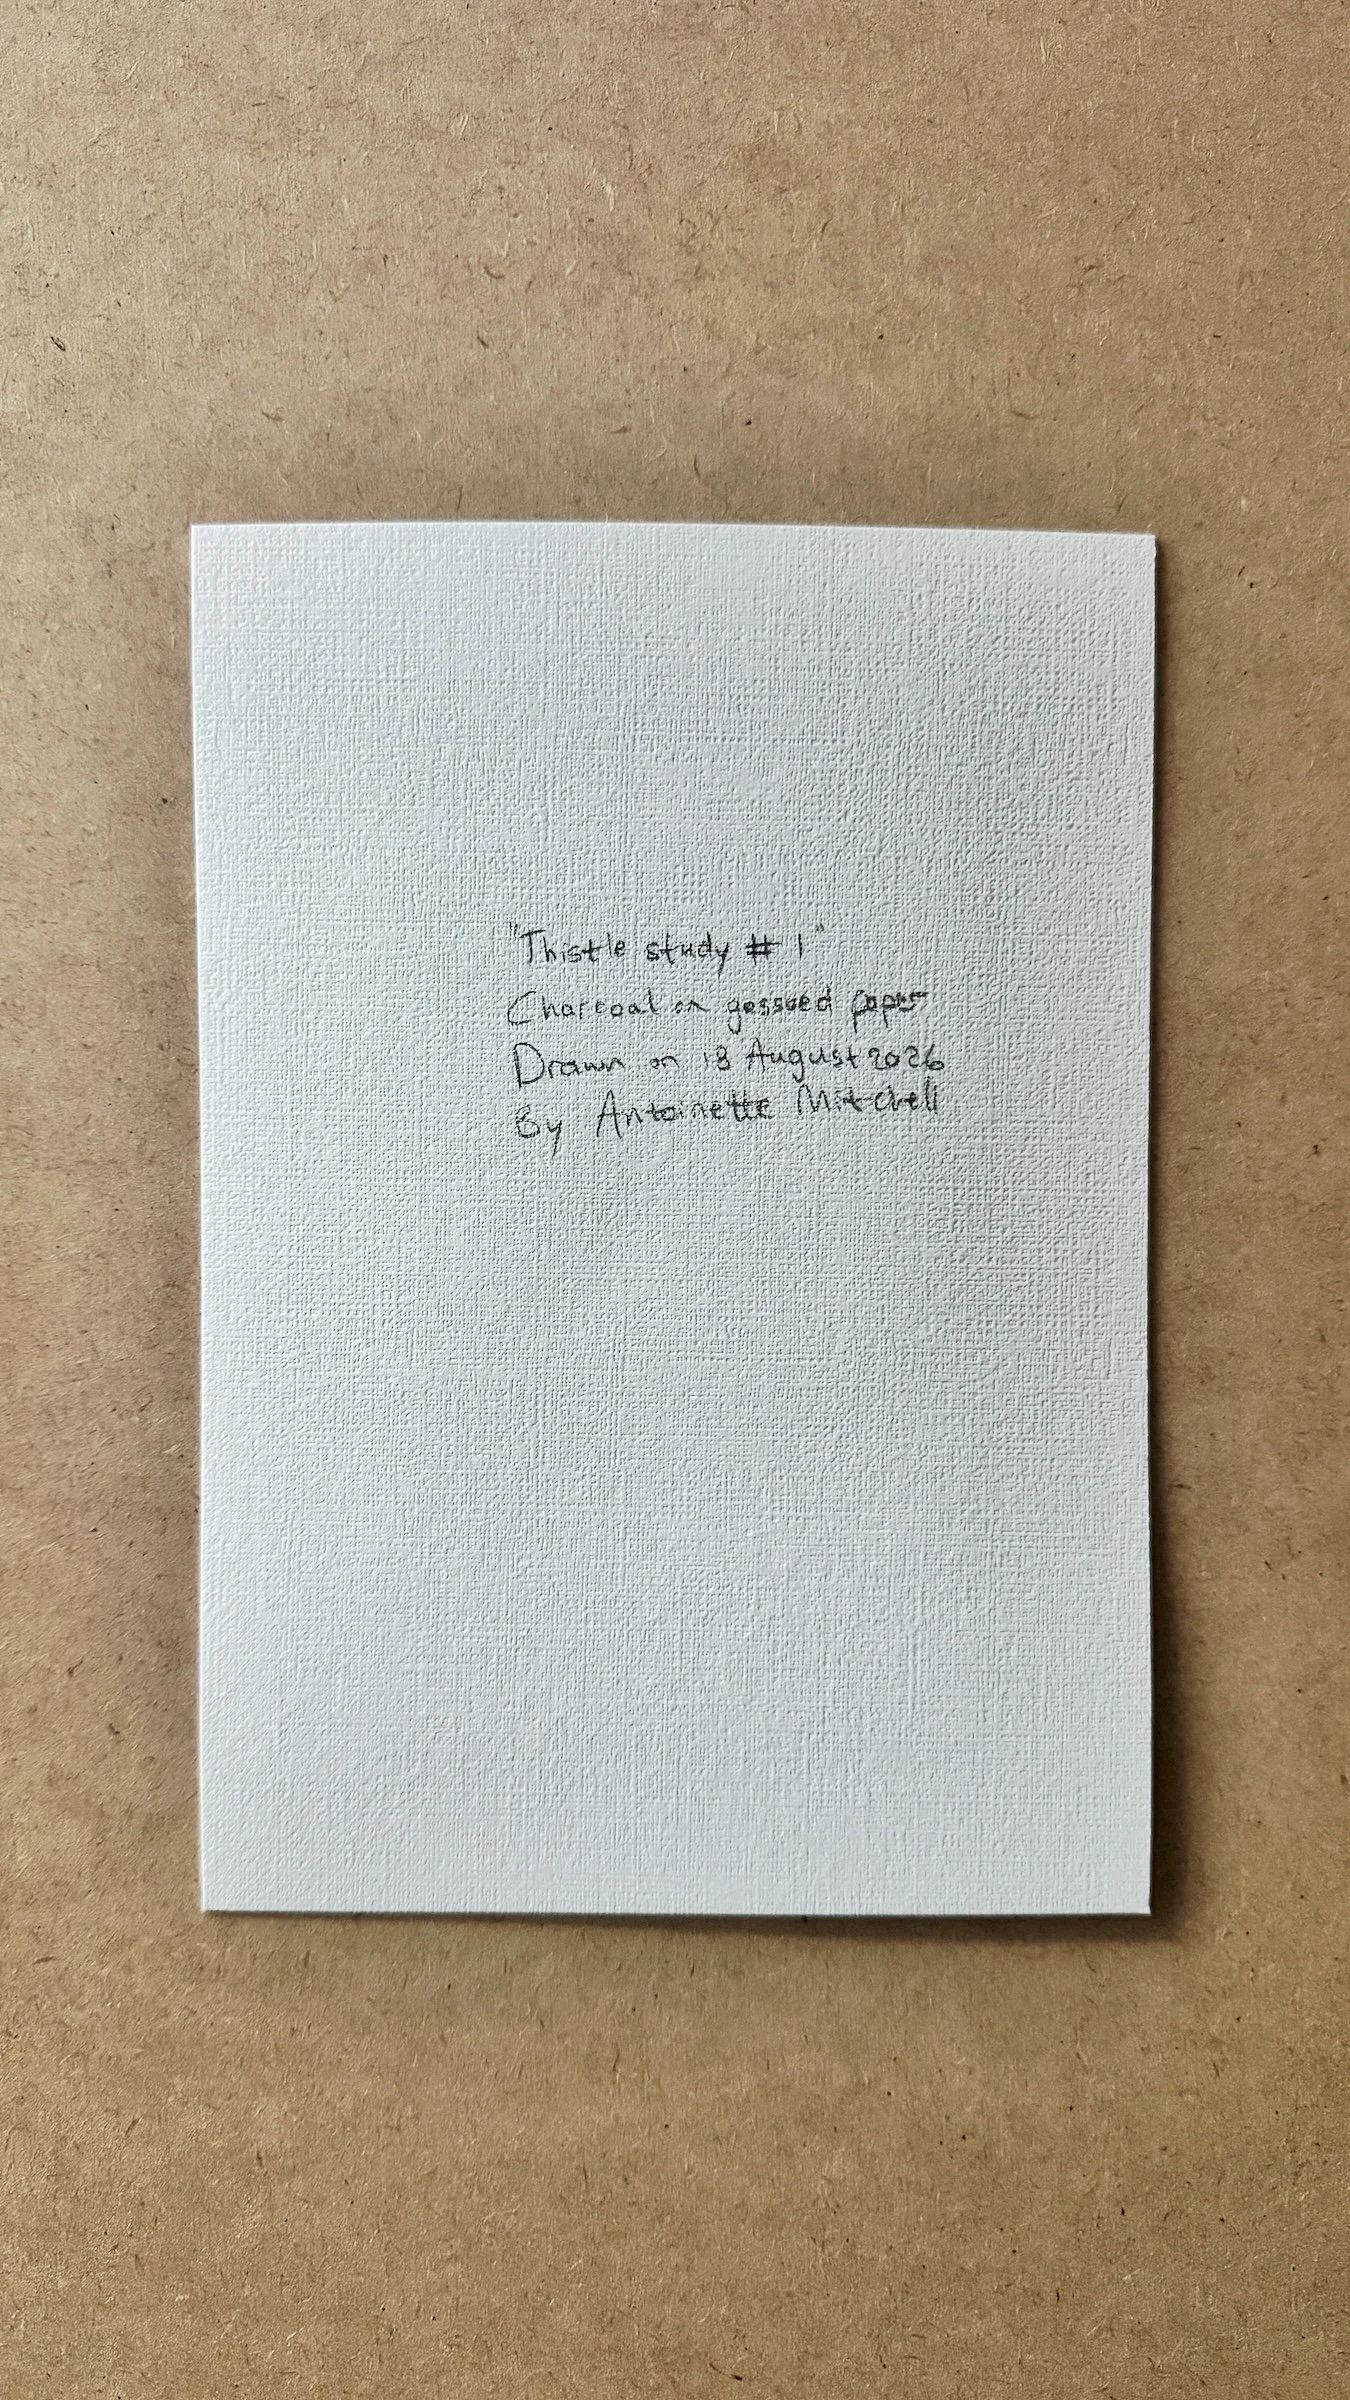 "Thistle study # 1"
Charcoal on gessoed paper
Drawn on 18 August 2026
By Antoinette Mitchell